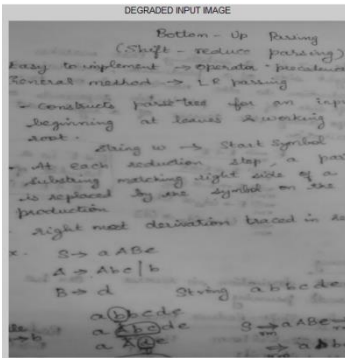 DEGRADED INPUT IMAGE
Bottom - Up Parsing
(Shift - reduce parsing)
Easy to implement → operator precedence
General method → LR parsing
- constructs parse tree for an inp
beginning at leaves & working
root.
string w → start symbol
- At each reduction step, a pa
substring matching right side of a
is replaced by the symbol on the
production
right most derivation traced in
S → aABe
A → Abc | b
B → d
String abbcde
abbcde
aAbcde
aAde
S → aABe
→ b